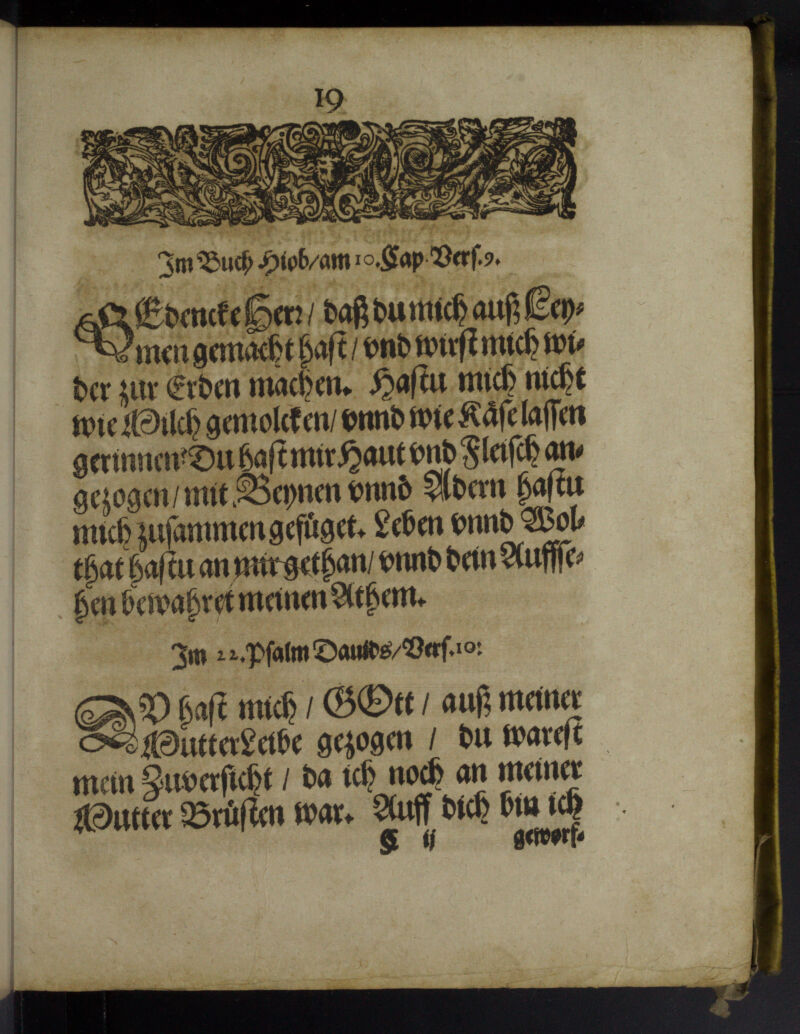 19
Im Buch Hiob/am 10.Kap.Verf.9.
GEdencke Herr/ daß du mich auß Ley⸗
men gemacht haſt/ vnd wirſt mich wi⸗
der zur Erden machen. Haſtu mich nicht
wie Milch gemolcken/ vnnd wie Käſe laſſen
gerinnen? Du haſt mir Haut vnd Fleiſch an⸗
gezogen/ mit Beynen vnnd Adern haſtu
mich zuſammen gefüget. Leben vnnd Wol⸗
that haſtu an mir gethan/ vnnd dein Auffſe⸗
hen bewahret meinen Athem.
Im 22.Pſalm Dauids/Verſ.10:
DV haſt mich / GOtt / auß meiner
MutterLeibe gezogen / du wareſt
mein Zuverſicht / da ich noch an meiner
Mutter Brüſten war. Auff dich bin ich
F ij geworf⸗